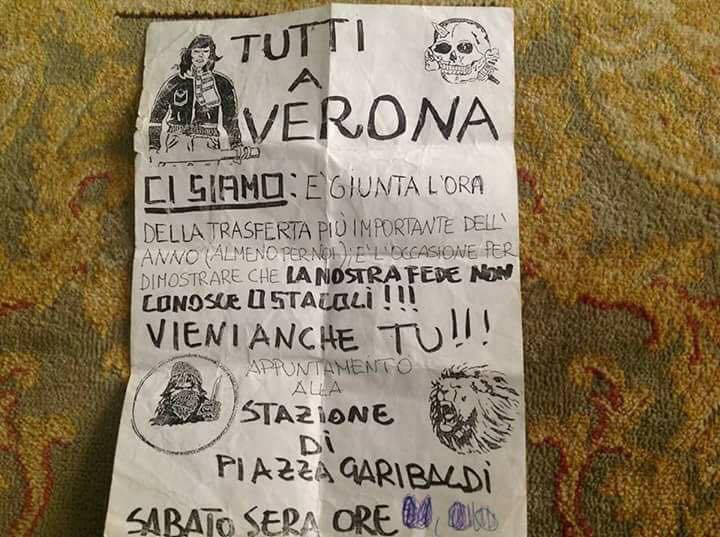 TUTTI
A
VERONA
CI SIAMO: E' GIUNTA L'ORA
DELLA TRASFERTA PIÙ IMPORTANTE DELL'
ANNO (ALMENO PER NOI); E' L'OCCASIONE PER
DIMOSTRARE CHE LA NOSTRA FEDE NON
CONOSCE OSTACOLI!!!
VIENI ANCHE TU!!!
APPUNTAMENTO
ALLA
STAZIONE
DI
PIAZZA GARIBALDI
SABATO SERA ORE